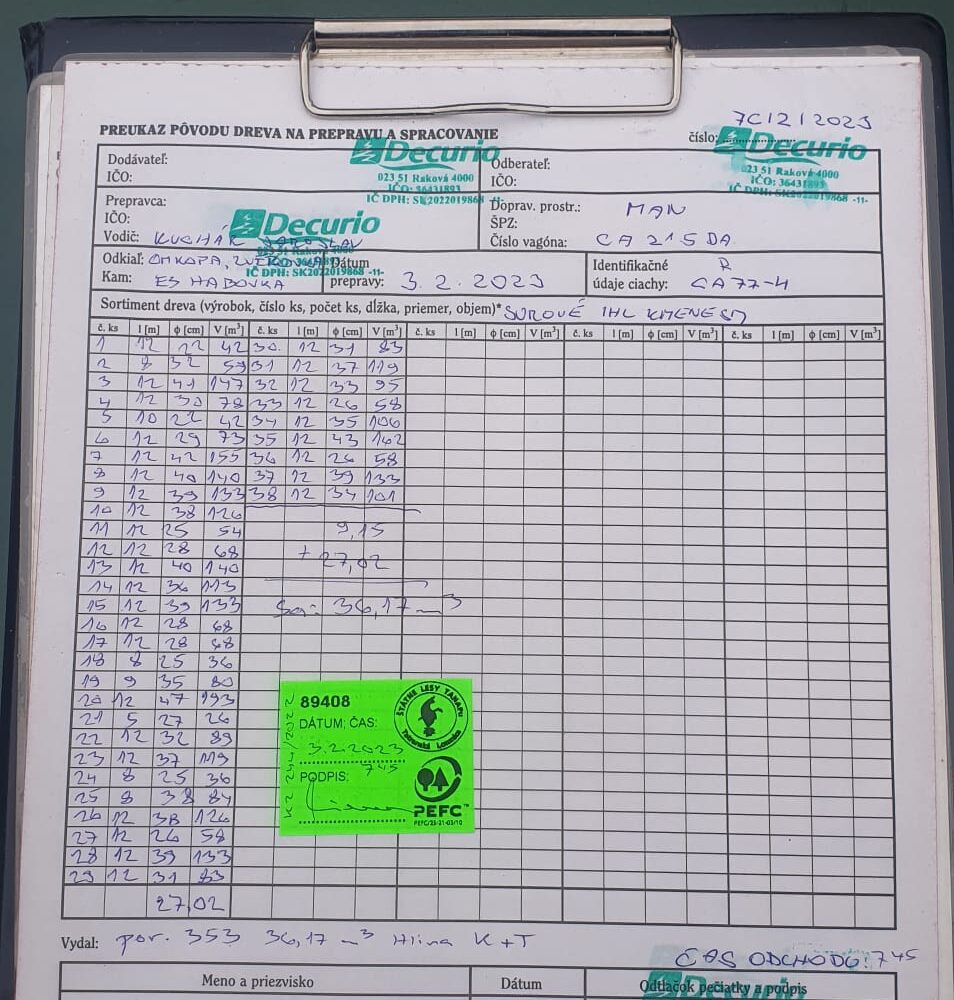 7C/2/2023
PREUKAZ PÔVODU DREVA NA PREPRAVU A SPRACOVANIE
číslo:
Decurio
023 51 Raková 4000
IČO: 36431893
IČ DPH: SK2022019868 -11-
Decurio
023 51 Raková 4000
IČO: 36431893
IČ DPH: SK2022019868 -11-
Dodávateľ:
IČO:
Odberateľ:
IČO:
Prepravca:
IČO:
Vodič: KUCHÁR JAROSLAV
Decurio
IČ DPH: SK2022019868 -11-
Doprav. prostr.: MAN
ŠPZ:
Číslo vagóna: CA 215 DA
Odkiaľ: OMKOPA,
Kam: ES HABOVKA
Dátum
prepravy: 3. 2. 2023
Identifikačné R
údaje ciachy: CA 77-4
Sortiment dreva (výrobok, číslo ks, počet ks, dĺžka, priemer, objem)* SUROVÉ IHL KMENE SM
č. ks l [m] ϕ [cm] V [m³] č. ks l [m] ϕ [cm] V [m³] č. ks l [m] ϕ [cm] V [m³] č. ks l [m] ϕ [cm] V [m³] č. ks l [m] ϕ [cm] V [m³]
1 12 22 42 30. 12 31 83
2 8 32 59 31 12 37 119
3 12 41 147 32 12 33 95
4 12 30 78 33 12 26 58
5 10 22 42 34 12 35 106
6 12 29 73 35 12 43 162
7 12 42 155 36 12 26 58
8 12 40 140 37 12 39 133
9 12 39 133 38 12 34 101
10 12 38 126
11 12 25 54 9,15
12 12 28 68 + 27,02
13 12 40 140
14 12 36 113
15 12 39 133 Sa: 36,17 m³
16 12 28 68
17 12 28 68
18 8 25 36
19 9 35 80
20 12 47 193
21 5 27 26
22 12 32 89
23 12 37 119
24 8 25 36
25 8 38 84
26 12 38 126
27 12 26 58
28 12 39 133
29 12 31 83
27,02
89408
DÁTUM; ČAS:
3.2.2023
745
PODPIS:
ŠTÁTNE LESY TANAPU
Tatranská Lomnica
PEFC™
PEFC/23-21-03/10
Vydal: por. 353 36,17 m³ Hlina K+T
ČAS ODCHODU: 745
Meno a priezvisko Dátum Odtlačok pečiatky a podpis
Decurio